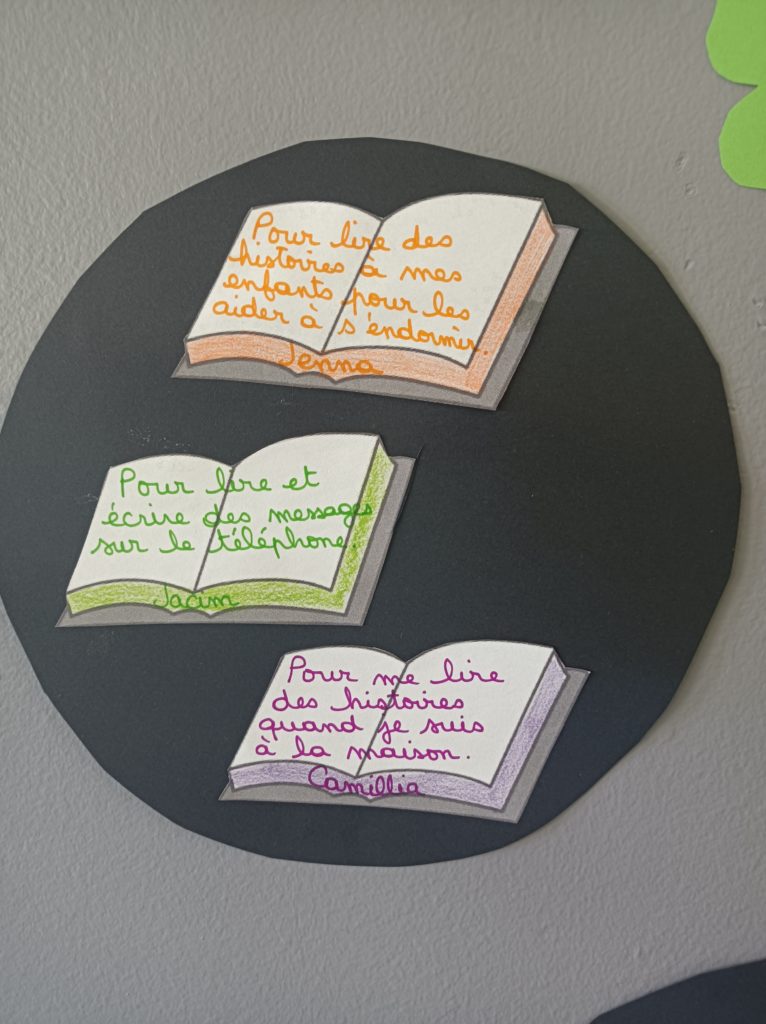 Pour lire des
histoires à mes
enfants pour les
aider à s'endormir.
Jenna
Pour lire et
écrire des messages
sur le téléphone.
Jacim
Pour me lire
des histoires
quand je suis
à la maison.
Camillia